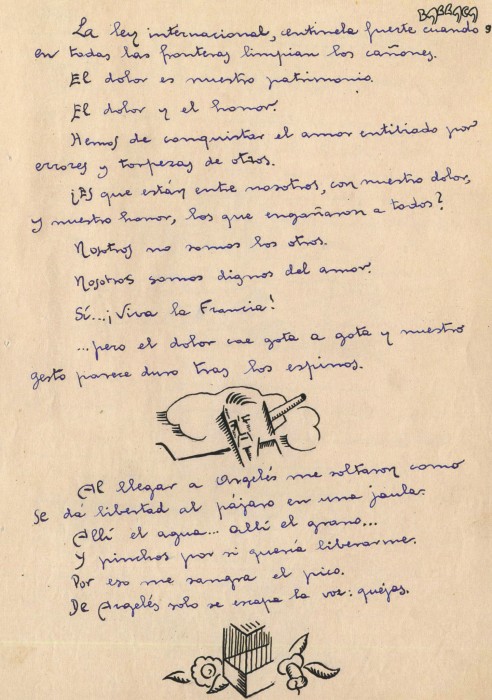 Barraca 9
La ley internacional, centinela fuerte cuando
en todas las fronteras limpian los cañones.
El dolor es nuestro patrimonio.
El dolor y el honor.
Hemos de conquistar el amor entibiado por
errores y torpezas de otros.
¿Es que están entre nosotros, con nuestro dolor,
y nuestro honor, los que engañaron a todos?
Nosotros no somos los otros.
Nosotros somos dignos del amor.
Sí...¡Viva la Francia!
...pero el dolor cae gota a gota y nuestro
gesto parece duro tras los espinos.
Al llegar a Argelés me soltaron como
se dá libertad al pájaro en una jaula.
Allí el agua... allí el grano...
Y pinchos por si quería liberarme.
Por eso me sangra el pico.
De Argelés solo se escapa la voz: quejas.